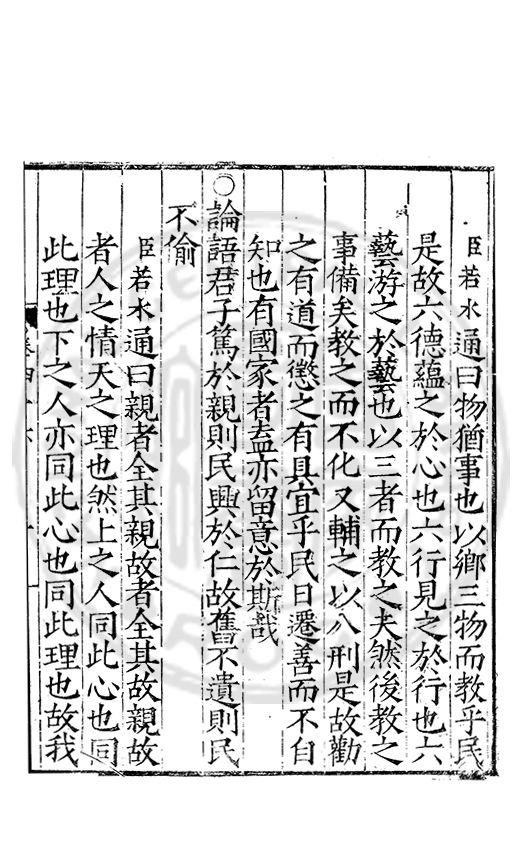 臣若水通曰物猶事也以鄉三物而教乎民
是故六德蘊之於心也六行見之於行也六
藝游之於藝也以三者而教之夫然後教之
事備矣教之而不化又輔之以八刑是故勸
之有道而懲之有具宜乎民日遷善而不自
知也有國家者盍亦留意於斯哉
○論語君子篤於親則民興於仁故舊不遺則民
不偷
臣若水通曰親者全其親故者全其故親故
者人之情天之理也然上之人同此心也同
此理也下之人亦同此心也同此理也故我